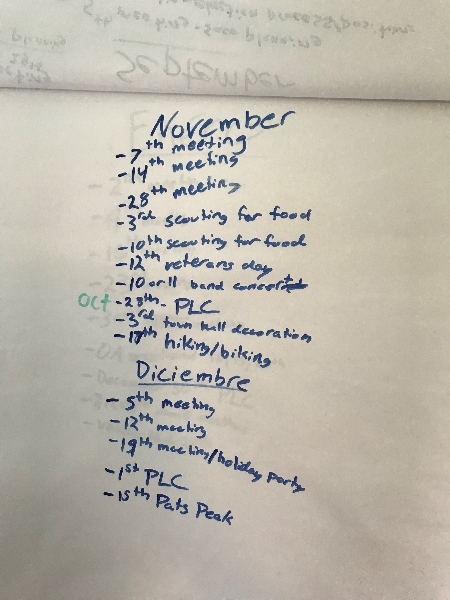 September
November
-7th meeting
-14th meeting
-28th meeting
-3rd scouting for food
-10th scouting for food
-12th veterans day
-10 or 11 band concert
Oct -28th- PLC
-3rd town hall decoration
-17th hiking/biking
Diciembre
-5th meeting
-12th meeting
-19th meeting/holiday party
-1st PLC
-15th Pats Peak